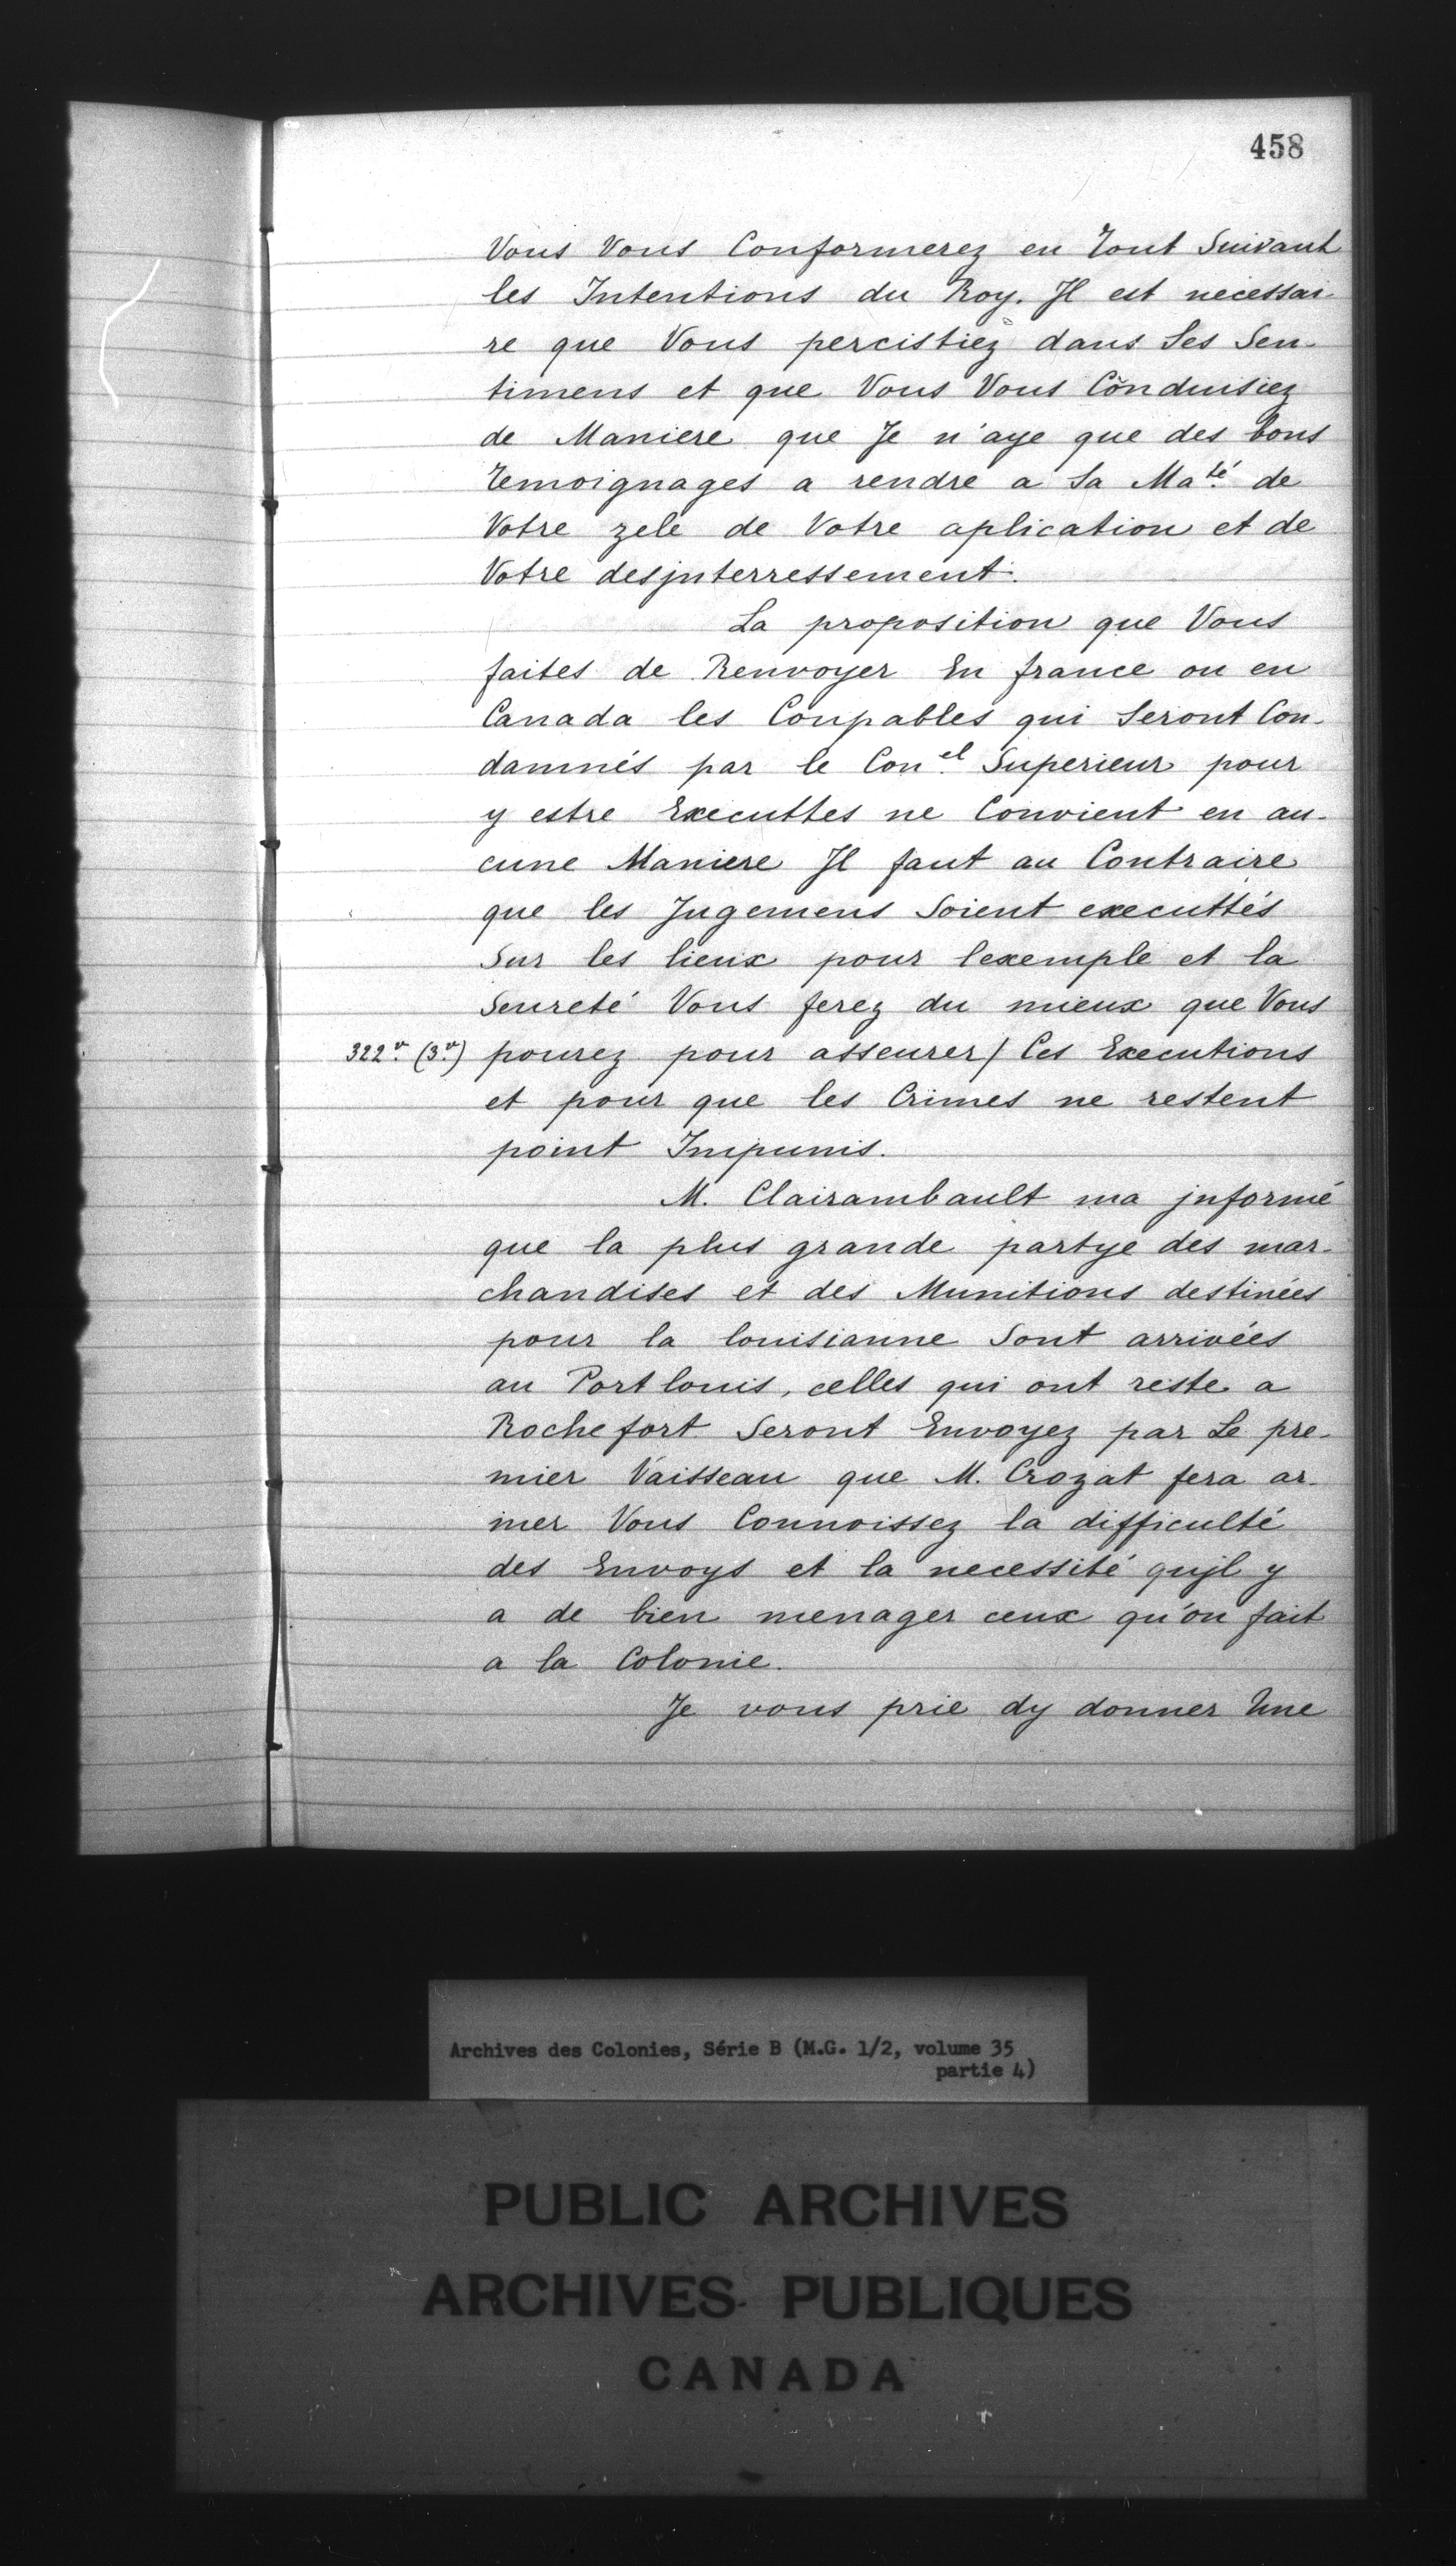 458
Vous Vous Conformerez en Tout Suivant
les Intentions du Roy. Il est necessai-
re que Vous percistiez dans Ses Sen-
timens et que Vous Vous Conduisiez
de Maniere que Je n'aye que des bons
Temoignages a rendre a Sa Ma.té de
Votre zele de Votre aplication et de
Votre desjnterressement.
La proposition que Vous
faites de Renvoyer En france ou en
Canada les Coupables qui Seront Con-
damnés par le Con.el Superieur pour
y estre Executtes ne Convient en au-
cune Maniere Il faut au Contraire
que les Jugemens Soient executtés
Sur les lieux pour lexemple et la
Seureté Vous ferez du mieux que Vous
322.v (3.v) pourez pour asseurer / Ces Executions
et pour que les Crimes ne restent
point Impunis.
M. Clairambault ma jnformé
que la plus grande partye des mar-
chandises et des Munitions destinées
pour la louisianne Sont arrivées
au Port louis, celles qui ont reste a
Rochefort Seront Envoyez par Le pre-
mier Vaisseau que M. Crozat fera ar-
mer Vous Connoissez la difficulté
des Envoys et la necessité qujl y
a de bien menager ceux qu'on fait
a la Colonie.
Je vous prie dy donner Une
Archives des Colonies, Série B (M.G. 1/2, volume 35
partie 4)
PUBLIC ARCHIVES
ARCHIVES PUBLIQUES
CANADA